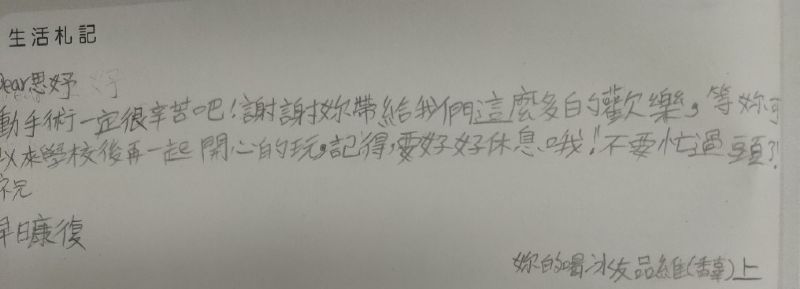 生活札記
Dear思妤
動手術一定很辛苦吧！謝謝妳帶給我們這麼多的歡樂，等妳可
以來學校後再一起開心的玩，記得，要好好休息哦！不要忙過頭了！
祝
早日康復
妳的喝冰友品維()上